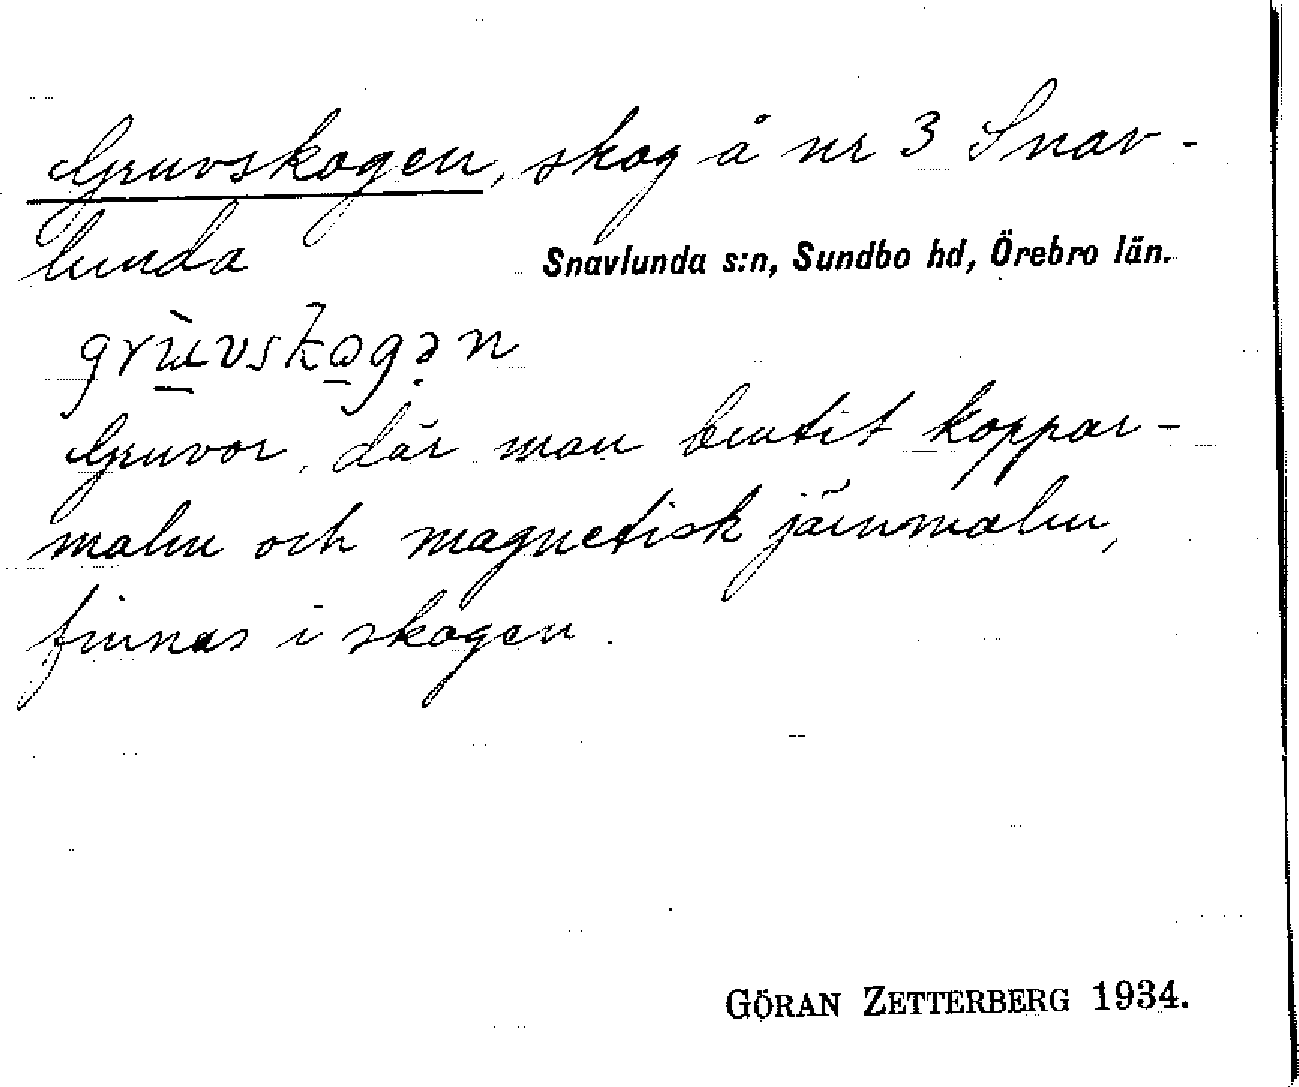 Gruvskogen, skog å nr 3 Snav-
lunda
Snavlunda s:n, Sundbo hd, Örebro län.
grɯ̀vskogən
Gruvor, där man brutit koppar-
malm och magnetisk järnmalm,
finnas i skogen.
GÖRAN ZETTERBERG 1934.